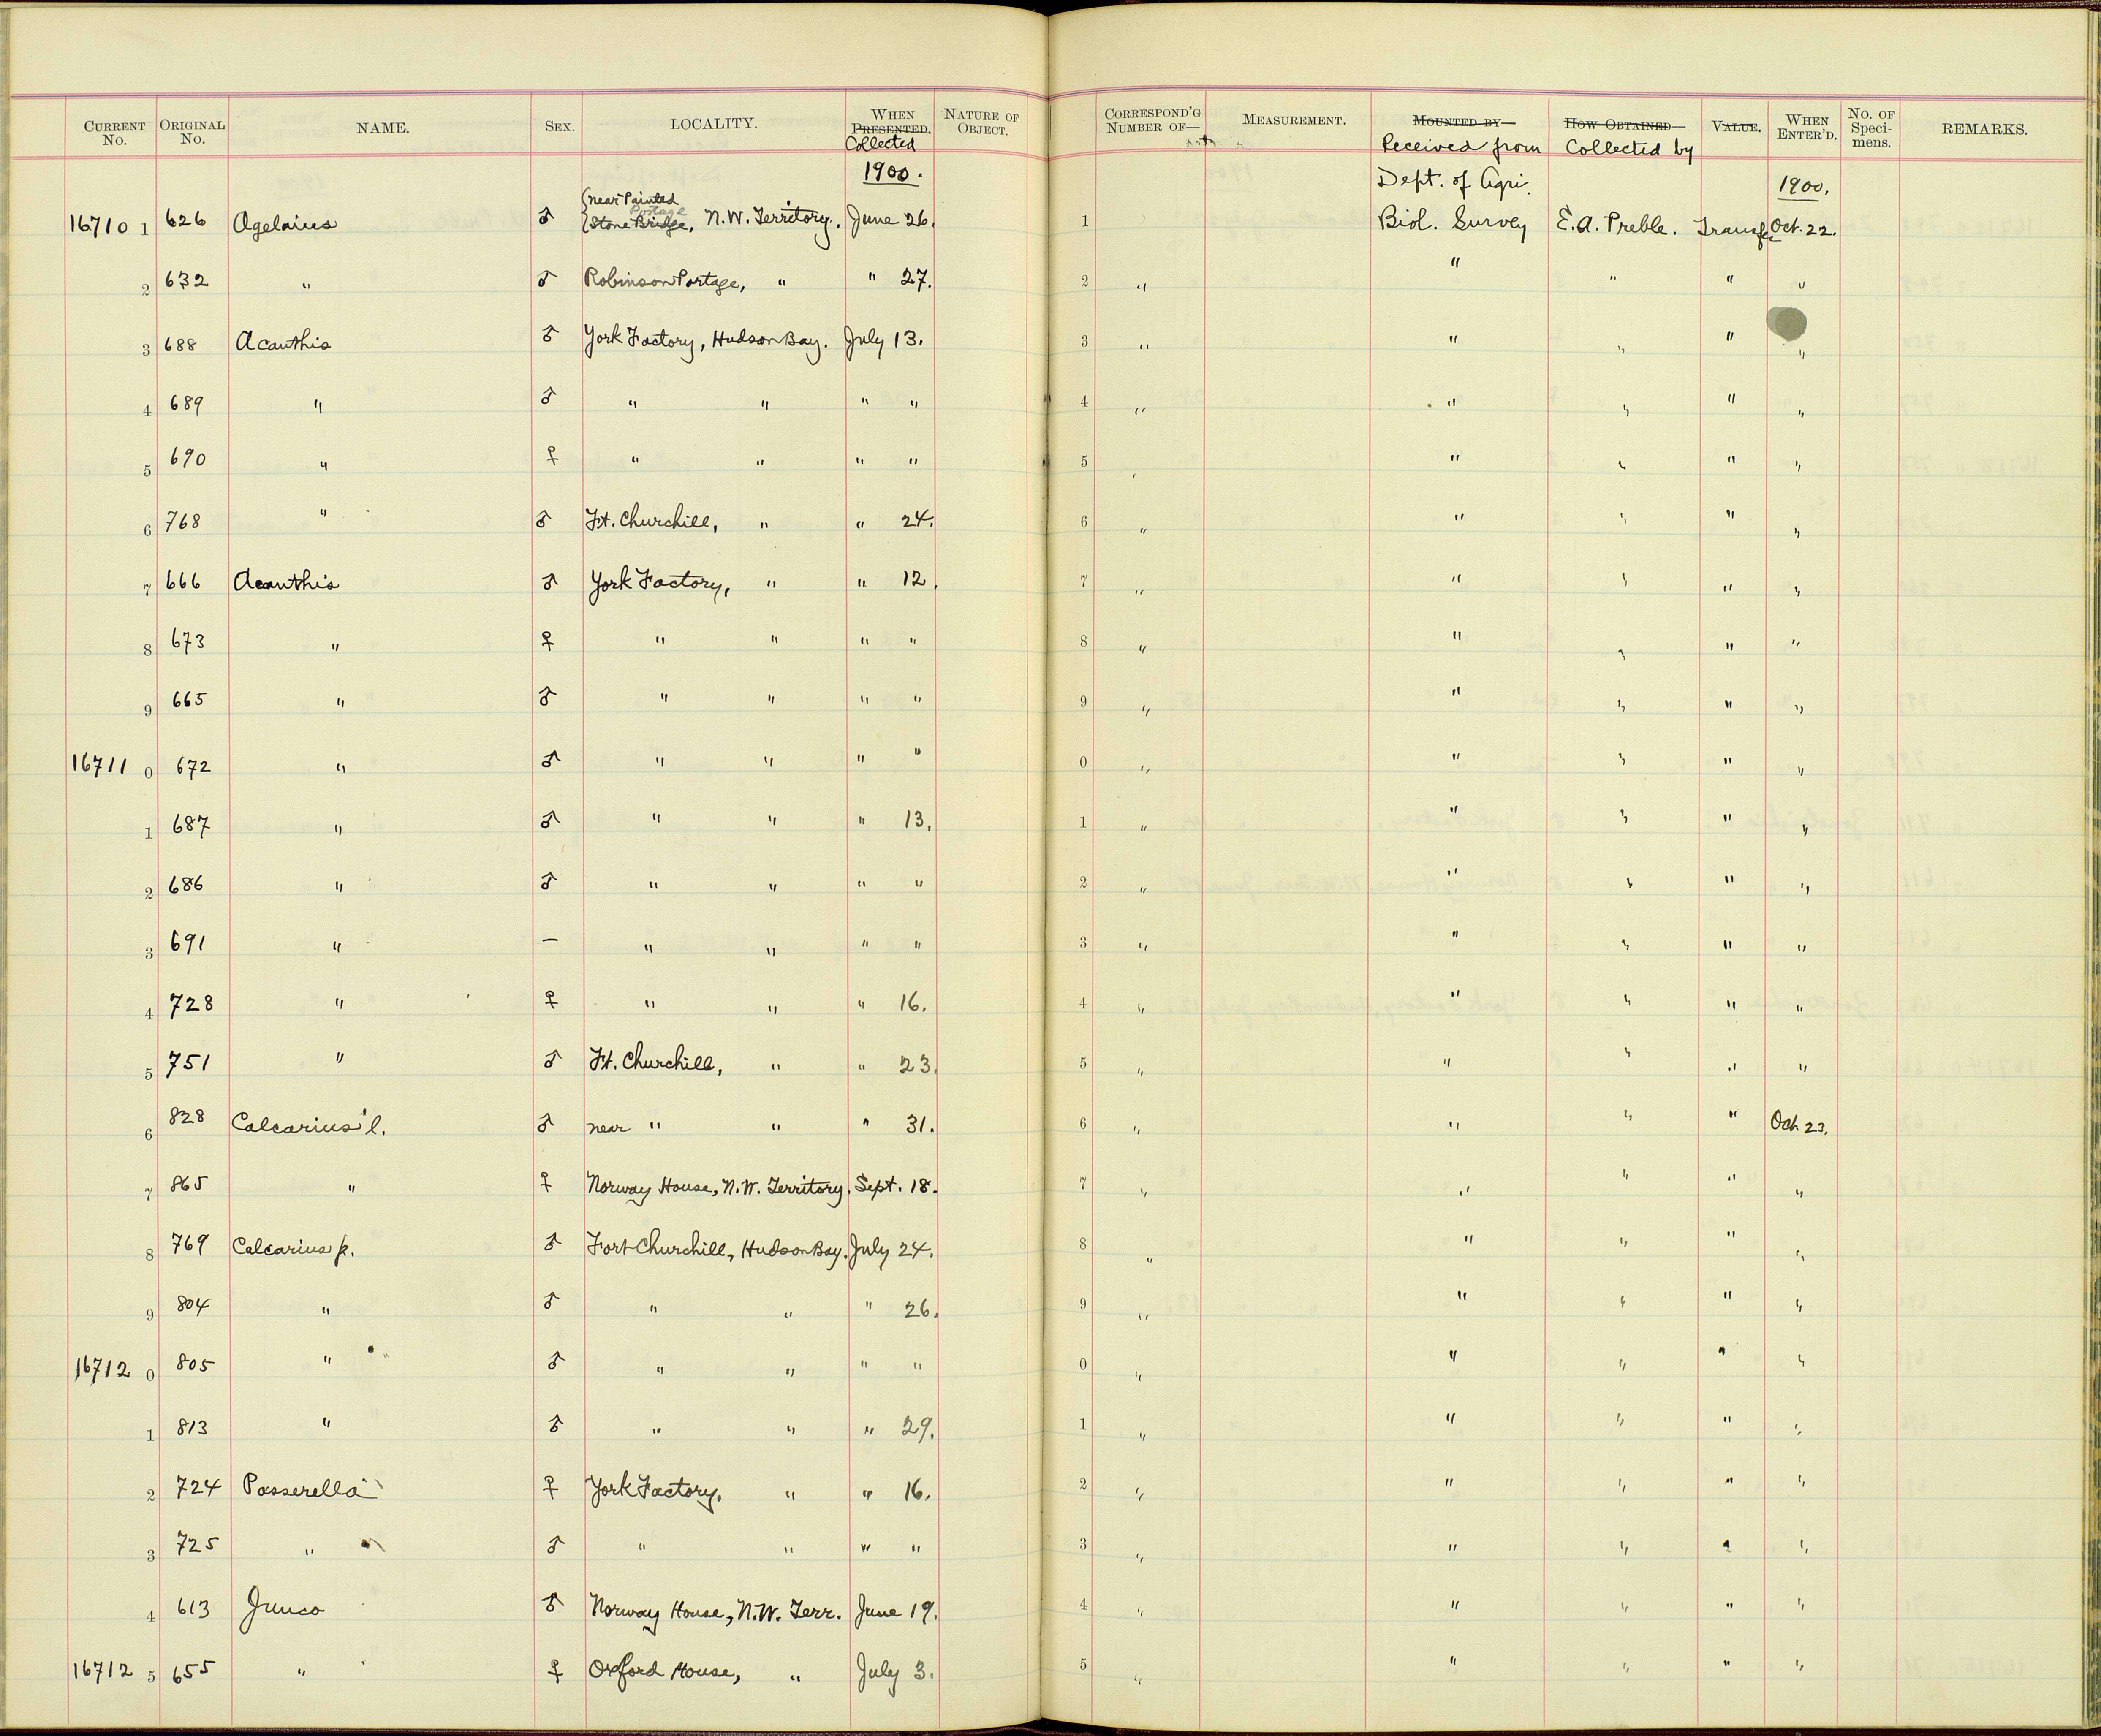 CURRENT No. ORIGINAL No. NAME. SEX. LOCALITY. WHEN PRESENTED. Collected NATURE OF OBJECT. CORRESPOND'G NUMBER OF— MEASUREMENT. MOUNTED BY— Received from HOW OBTAINED— Collected by VALUE. WHEN ENTER'D. No. OF Speci-mens. REMARKS.
1900. Dept. of Agri. 1900.
16710 1 626 Agelaius ♂ {near Painted Stone Portage Bridge, N.W. Territory. June 26. 1 Biol. Survey E.A. Preble. Transfer Oct. 22.
2 632 " ♂ Robinson Portage, " " 27. 2 " " " " "
3 688 Acanthis ♂ York Factory, Hudson Bay. July 13. 3 " " " " "
4 689 " ♂ " " " " 4 " " " " "
5 690 " ♀ " " " " 5 " " " " "
6 768 " ♂ Ft. Churchill, " " 24. 6 " " " " "
7 666 Acanthis ♂ York Factory, " " 12. 7 " " " " "
8 673 " ♀ " " " " 8 " " " " "
9 665 " ♂ " " " " 9 " " " " "
16711 0 672 " ♂ " " " " 0 " " " " "
1 687 " ♂ " " " 13. 1 " " " " "
2 686 " ♂ " " " " 2 " " " " "
3 691 " — " " " " 3 " " " " "
4 728 " ♀ " " " 16. 4 " " " " "
5 751 " ♂ Ft. Churchill, " " 23. 5 " " " " "
6 828 Calcarius l. ♂ near " " " 31. 6 " " " " Oct. 23.
7 865 " ♀ Norway House, N.W. Territory. Sept. 18. 7 " " " " "
8 769 Calcarius p. ♂ Fort Churchill, Hudson Bay. July 24. 8 " " " " "
9 804 " ♂ " " " 26. 9 " " " " "
16712 0 805 " ♂ " " " " 0 " " " " "
1 813 " ♂ " " " 29. 1 " " " " "
2 724 Passerella ♀ York Factory. " " 16. 2 " " " " "
3 725 " ♂ " " " " 3 " " " " "
4 613 Junco ♂ Norway House, N.W. Terr. June 19. 4 " " " " "
16712 5 655 " ♀ Oxford House, " July 3. 5 " " " " "